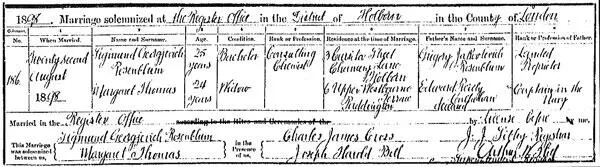 1898. Marriage solemnized at The Register Office in the District of Holborn in the County of London
No. When Married. Name and Surname. Age. Condition. Rank or Profession. Residence at the time of Marriage. Father's Name and Surname. Rank or Profession of Father.
186 Twenty second August 1898 Sigmund Georgjevich Rosenblum 25 years Bachelor Consulting Chemist 3 Cursitor Street Chancery Lane Holborn Rosenblum Landed Proprietor
Margaret Thomas 24 years Widow 6 Upper Westbourne Terrace Paddington Edward Callahan deceased Captain in the Navy
Married in the Register Office according to the Rites and Ceremonies of the by License before by me,
This Marriage was solemnized between us, Sigmund Georgjevich Rosenblum Margaret Thomas in the Presence of us, Charles James Cross Joseph Bell Registrar
Superintendent Registrar